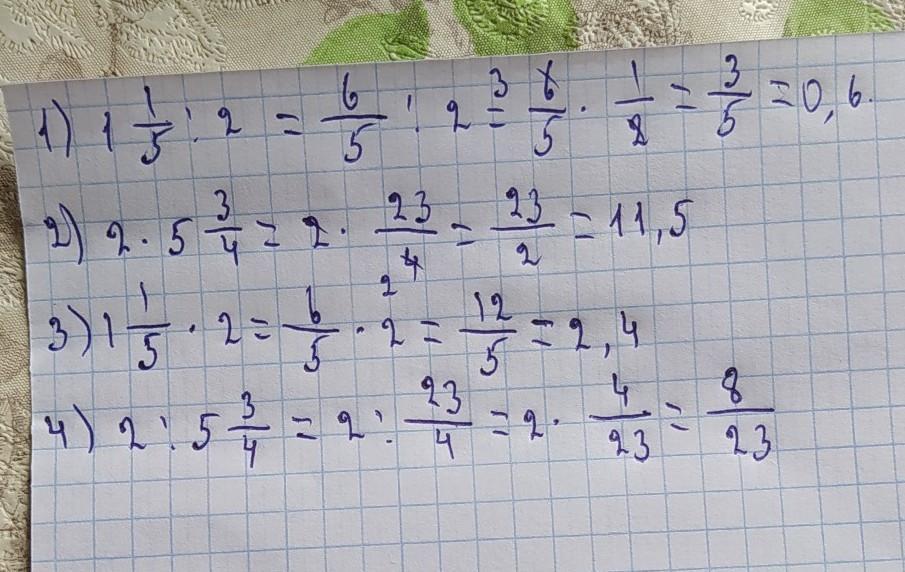 1) 1 1/5 : 2 = 6/5 : 2 = 3 6/5 · 1/2 = 3/5 = 0,6.
2) 2 · 5 3/4 = 2 · 23/4 2 = 23/2 = 11,5
3) 1 1/5 · 2 = 6/5 · 2 = 12/5 = 2,4
4) 2 : 5 3/4 = 2 : 23/4 = 2 · 4/23 = 8/23